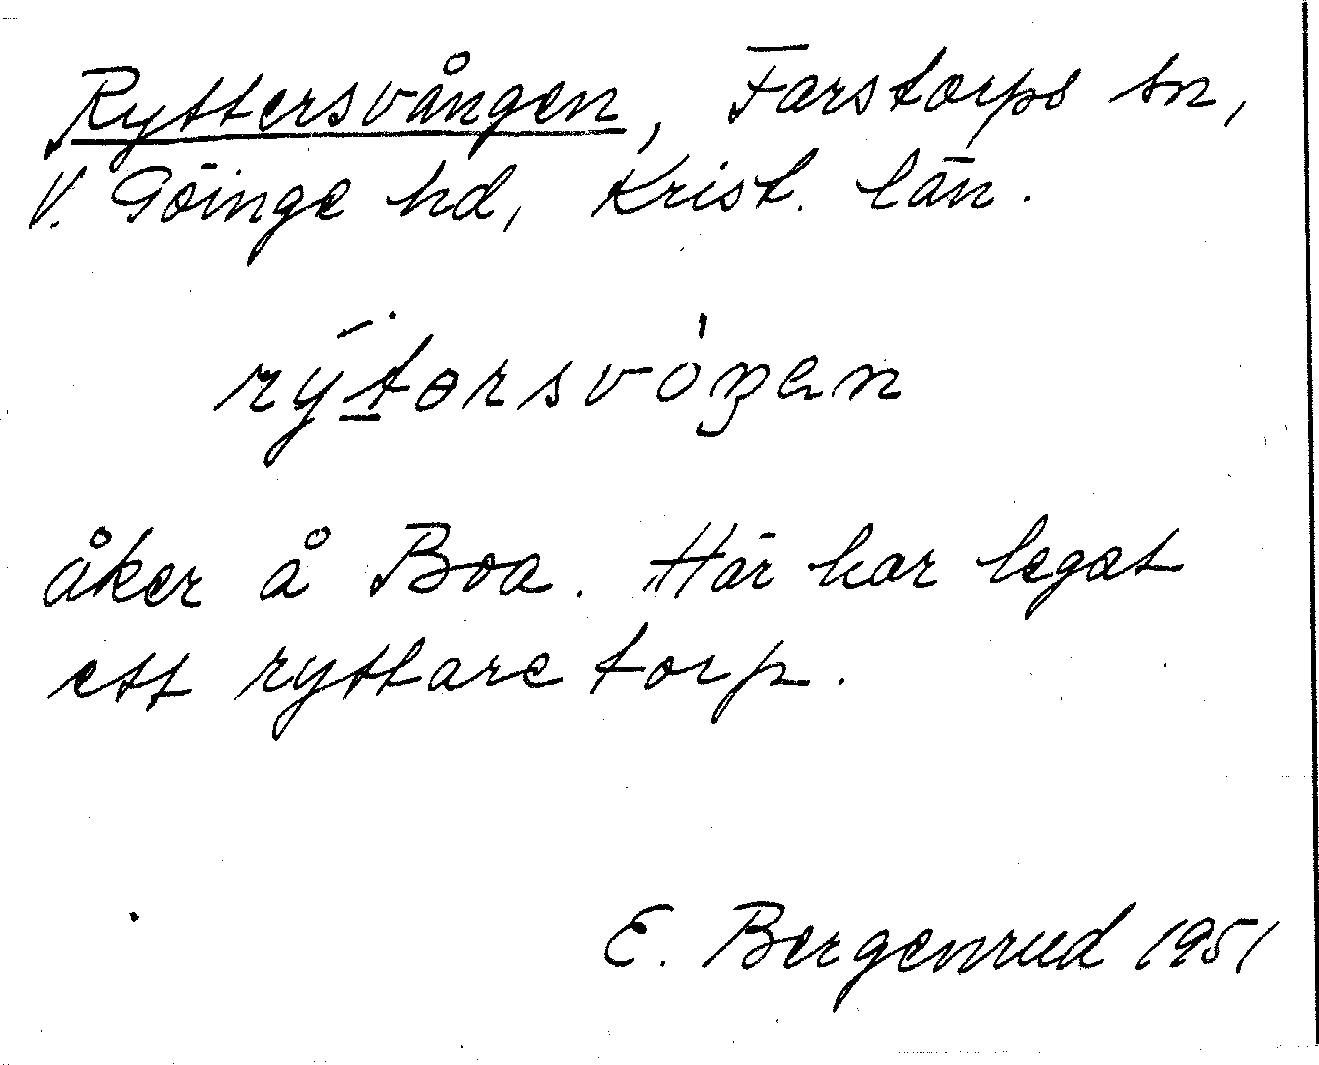 Ryttersvången, Farstorps sn,
V. Göinge hd, Krist. län.
rýt̲ərsvóŋen
åker å Boa. Här har legat
ett ryttare torp.
E. Bergenrud 1951